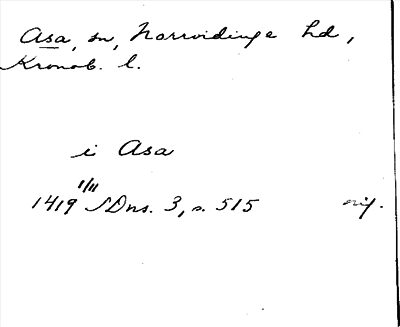 Asa, sn, Norrvidinge hd,
Kronob. l.
i Asa
1419 1/11 SDns. 3, s. 515 orig.